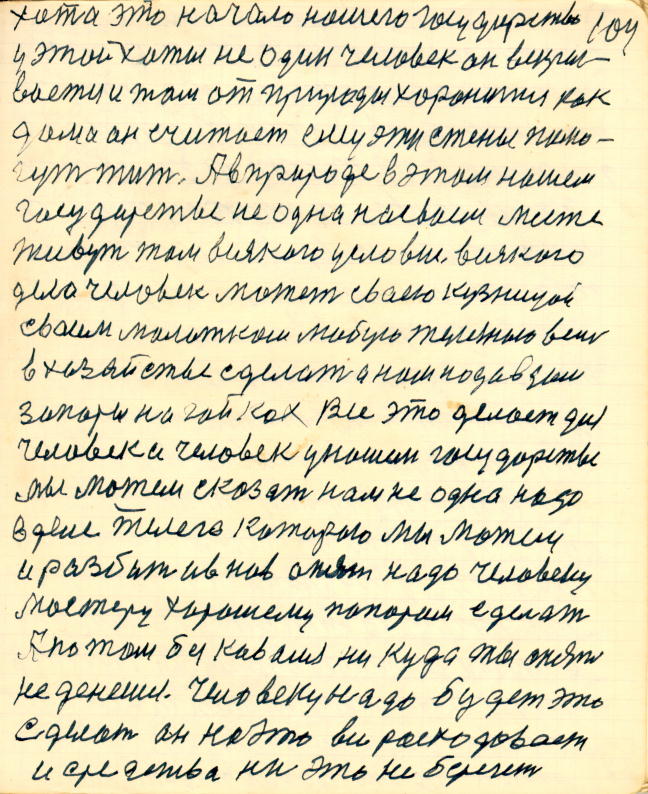 хата это начало нашего государства 104
у этой хаты не один человек он
и там от природы хоронится как
дома он считает ему эти стены помо-
гут жит. А в природе в этом нашем
государстве не одна на своем месте
живут там всякого условие. всякого
дела человек может своею кузницой
своим молотком любую железною вещ
в хозяйстве сделат а нам надо в
запоры на гайках Все это делает дя
человека человек у нашем государстве
мы можем сказат нам не одна надо
в деле телега каторою мы можем
и разбит и внов опят надо человеку
мастеру хорошему топором сделат
А потом без коваля ни куда ты опят
не денеш. Человеку надо будет это
сделат он на это все расходовает
и средства ни это не берегет